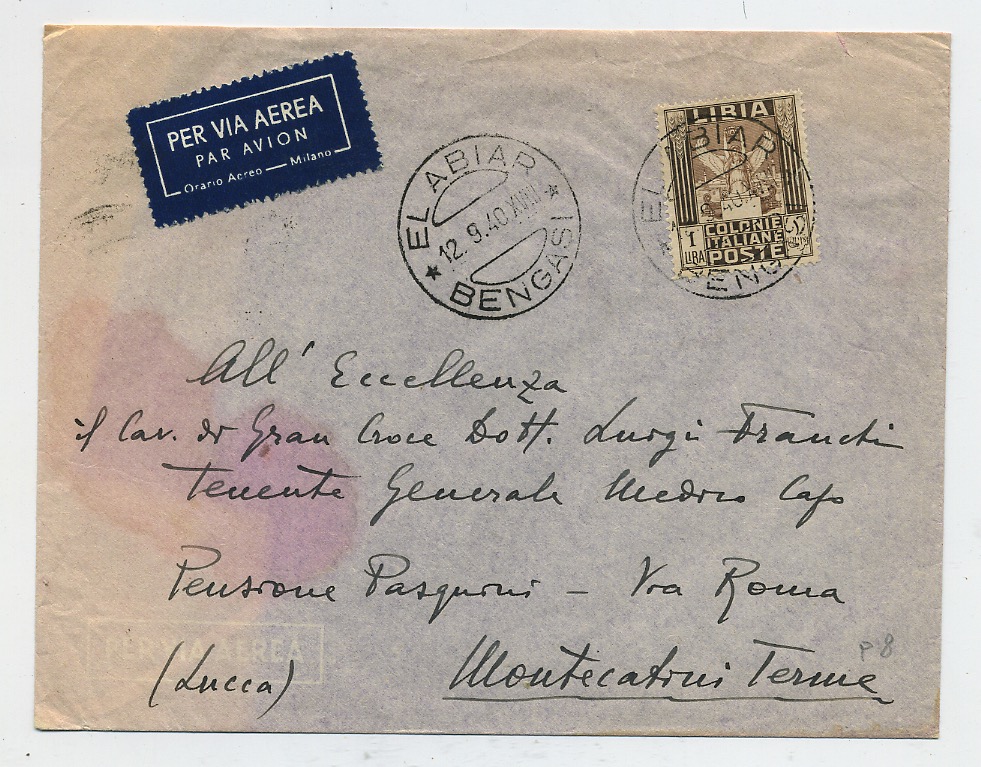 PER VIA AEREA
PAR AVION
Orario Aereo — Milano
EL ABIAR
12.9.40 XVIII
★ BENGASI ★
LIBIA
1 LIRA
COLONIE
ITALIANE
POSTE
EL ABIAR
BENG
All' Eccellenza
il Cav. di Gran Croce Dott. Luigi Franchi
Tenente Generale Medico Capo
Pensione Pasquini – Via Roma
PER VIA AEREA
(Lucca)
Montecatini Terme
P. 8